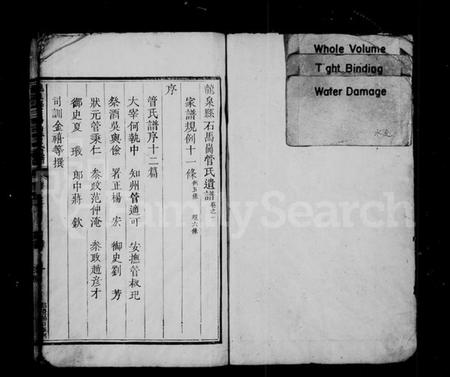 龍泉縣石馬崗管氏遺譜 卷之一
家譜規例十一條 新五條 舊六條
序
管氏譜序十二篇
大宰何執中 知州管適可 安撫管枢玘
祭酒吳輿儉 署正楊宏 御史劉芳
狀元管秉仁 叅政范仲淹 叅政趙彥才
御史夏瑴 郎中蔣欽
司訓金禧等撰
Whole Volume
Tight Binding
Water Damage
水蛊
FamilySearch